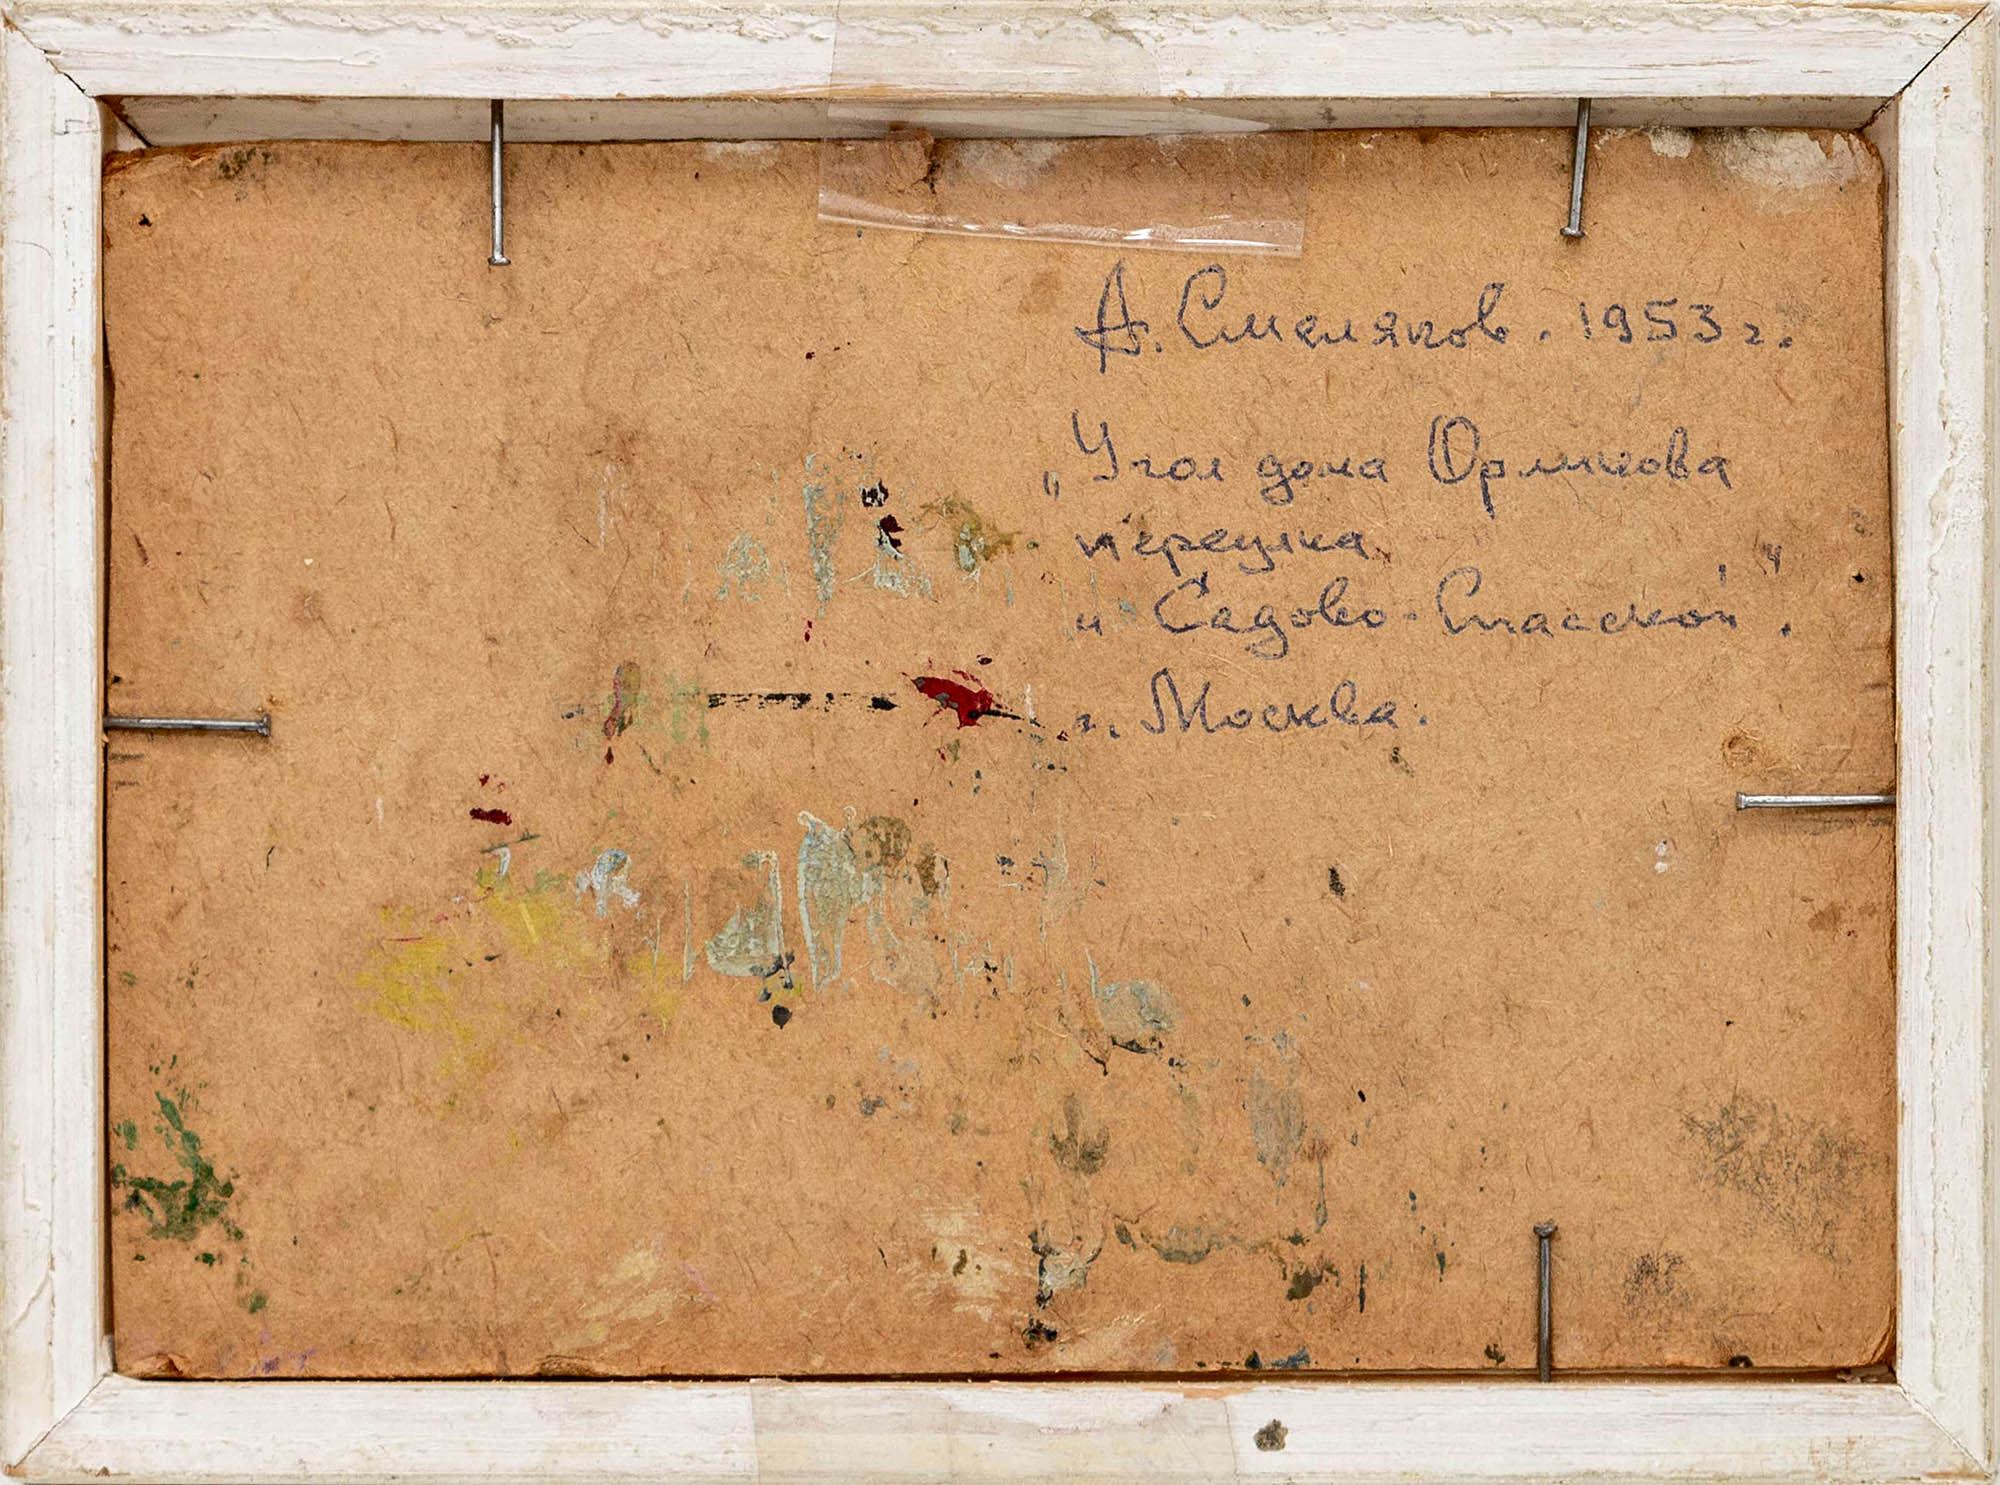 А. Смеляков. 1953 г.
„Угол дома Орликова
переулка
и Садово-Спасской".
г. Москва.